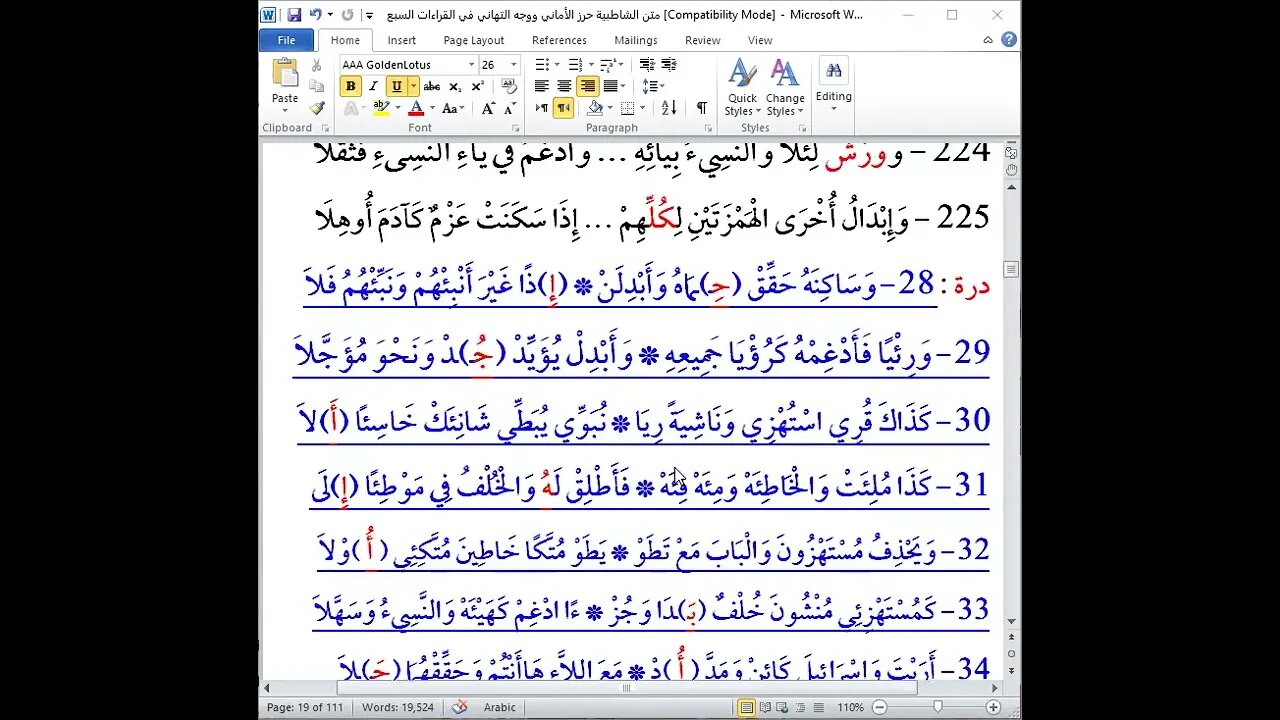 متن الشاطبية حرز الأماني ووجه التهاني في القراءات السبع [Compatibility Mode] - Microsoft W...
File Home Insert Page Layout References Mailings Review View
AAA GoldenLotus 26
Paste Quick Styles Change Styles Editing
Clipboard Font Paragraph Styles
224 - وورش لِئَلَّا وَالنَّسِيءُ بِيَائِهِ ... وَأَدْغَمَ فِي يَاءِ النَّسِيءِ فَثَقَّلَا
225 - وَإِبْدَالُ أُخْرَى الْهَمْزَتَيْنِ لِكُلِّهِمْ ... إِذَا سَكَنَتْ عَزْمٌ كَآدَمَ أُوهِلَا
درة : 28- وَسَاكِنَهُ حَقِّقْ (حِـ)مَاهُ وَأَبْدِلَنْ * (إِ)ذًا غَيْرَ أَنْبِئْهُمْ وَنَبِّئْهُمُ فَلاَ
29- وَرِئْيًا فَأَدْغِمْهُ كَرُؤْيَا جَمِيعِهِ * وَأَبْدِلْ يُؤَيِّدْ (جُـ)دْ وَنَحْوَ مُؤَجَّلاَ
30- كَذَاكَ قُرِي اسْتُهْزِي وَنَاشِيَةً رِيَا * نُبَوِّي يُبَطِّي شَانِئَكْ خَاسِئًا (أَ)لاَ
31- كَذَا مُلِئَتْ وَالْخَاطِئَهْ وَمِئَهْ فِئَهْ * فَأَطْلِقْ لَهُ وَالْخُلْفُ فِي مَوْطِئًا (إِ)لَى
32- وَيَحْذِفُ مُسْتَهْزُونَ وَالْبَابَ مَعْ تَطَوْ * يَطَوْ مُتَّكًا خَاطِينَ مُتَّكِئِي (أُ)وْلاَ
33- كَمُسْتَهْزِئِي مُنْشُونَ خُلْفٌ (بَـ)دَا وَجُزْ * ءًا ادْغِمْ كَهَيْئَهْ وَالنَّسِيءُ وَسَهَّلاَ
34- أَرَيْتَ وَإِسْرَائِيلَ كَائِنْ وَمَدَّ (أُ)دْ * مَعَ اللاَّءِ هَاأَنْتُمْ وَحَقِّقْهُمَا (حَـ)لاَ
Page: 19 of 111 Words: 19,524 Arabic 110%